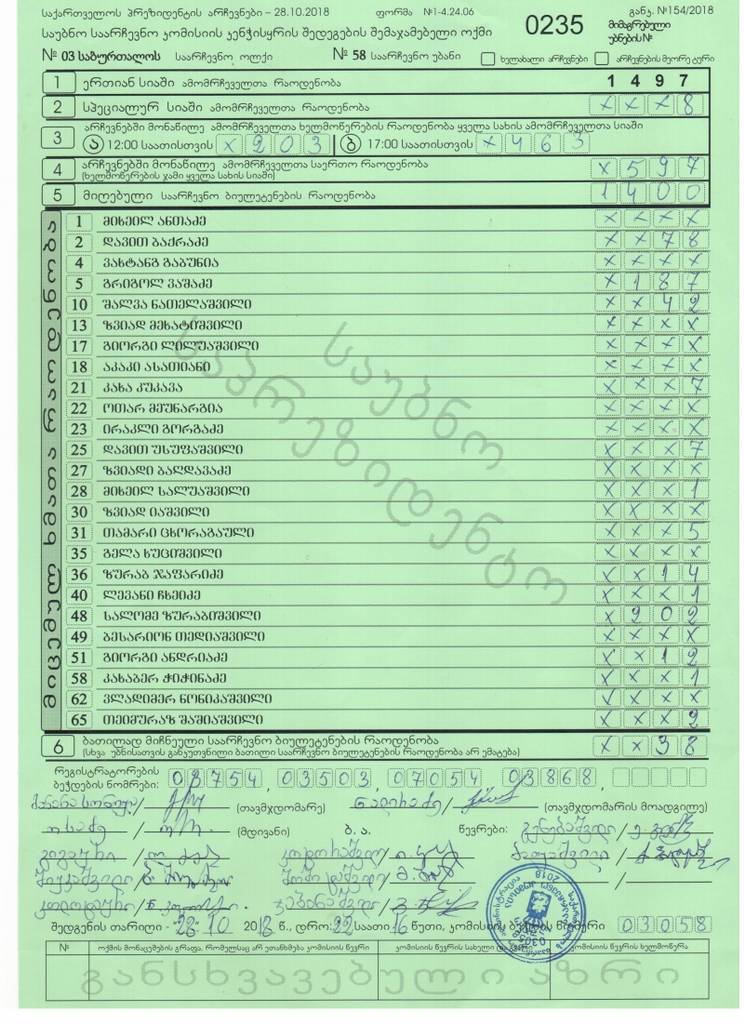 საქართველოს პრეზიდენტის არჩევნები – 28.10.2018 ფორმა №1-4.24.06 განკ. №154/2018
საუბნო საარჩევნო კომისიის კენჭისყრის შედეგების შემაჯამებელი ოქმი 0235 მიმაგრებული უბნების№
№ 03 საბურთალოს საარჩევნო ოლქი № 58 საარჩევნო უბანი ხელახალი არჩევნები არჩევნების მეორე ტური
1 ერთიან სიაში ამომრჩეველთა რაოდენობა 1 4 9 7
2 სპეციალურ სიაში ამომრჩეველთა რაოდენობა x x x 8
3 არჩევნებში მონაწილე ამომრჩეველთა ხელმოწერების რაოდენობა ყველა სახის ამომრჩეველთა სიაში
ა 12:00 საათისთვის x 2 0 3 ბ 17:00 საათისთვის x 4 6 3
4 არჩევნებში მონაწილე ამომრჩეველთა საერთო რაოდენობა x 5 9 7
(ხელმოწერების ჯამი ყველა სახის სიაში)
5 მიღებული საარჩევნო ბიულეტენების რაოდენობა 1 4 0 0
მიცემულ ხმათა რაოდენობა
1 მიხეილ ანთაძე x x x x
2 დავით ბაქრაძე x x 7 8
4 ვახტანგ გაბუნია x x x x
5 გრიგოლ ვაშაძე x 1 8 7
10 შალვა ნათელაშვილი x x 4 2
13 ზვიად მეხატიშვილი x x x x
17 გიორგი ლილუაშვილი x x x x
18 აკაკი ასათიანი x x x x
21 კახა კუკავა x x x 7
22 ოთარ მეუნარგია x x x x
23 ირაკლი გორგაძე x x x x
25 დავით უსუფაშვილი x x x 7
27 ზვიადი ბაღდავაძე x x x x
28 მიხეილ სალუაშვილი x x x 1
30 ზვიად იაშვილი x x x x
31 თამარი ცხორაგაული x x x 5
35 გელა ხუციშვილი x x x x
36 ზურაბ ჯაფარიძე x x 1 4
40 ლევანი ჩხეიძე x x x 1
48 სალომე ზურაბიშვილი x 2 0 2
49 ბესარიონ თედიაშვილი x x x x
51 გიორგი ანდრიაძე x x 1 2
58 კახაბერ ჭიჭინაძე x x x 1
62 ვლადიმერ ნონიკაშვილი x x x x
65 თეიმურაზ შაშიაშვილი x x x 2
საუბნო
საპრეზიდენტო
6 ბათილად მიჩნეული საარჩევნო ბიულეტენების რაოდენობა x x 3 8
(სხვა უბნისათვის განკუთვნილი ბათილი საარჩევნო ბიულეტენების რაოდენობა არ ემატება)
რეგისტრატორების
ბეჭდების ნომრები: 03503, 07054, 03868,
(თავმჯდომარე) (თავმჯდომარის მოადგილე)
(მდივანი) ბ. ა. წევრები:
შედგენის თარიღი - 28-10 2018 წ., დრო: 22 საათი 16 წუთი, კომისიის ბეჭდის ნომერი 03058
№ ოქმის მონაცემების გრაფა, რომელსაც არ ეთანხმება კომისიის წევრი კომისიის წევრის სახელი და გვარი კომისიის წევრის ხელმოწერა
განსხვავებული აზრი